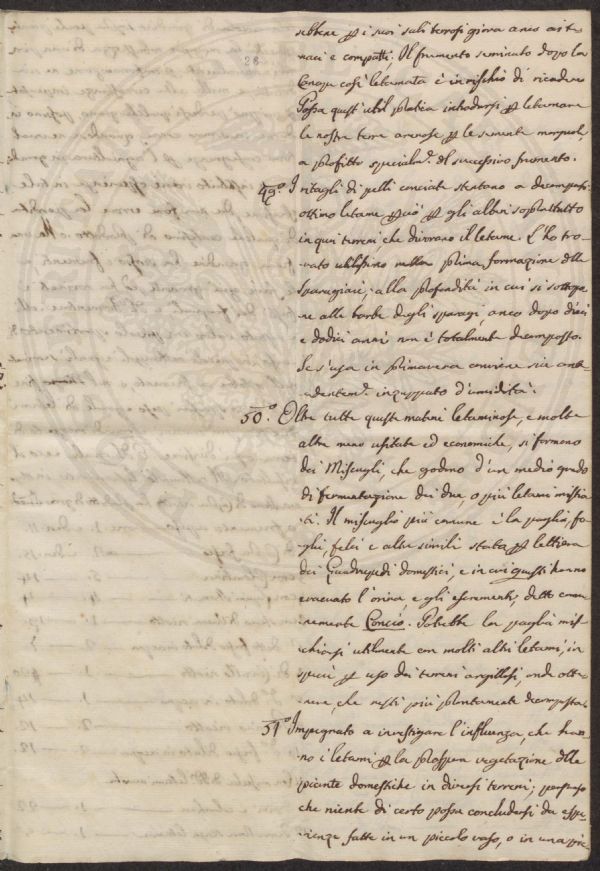 28
sebbene p i suoi sali terrosi giova anco ai te-
naci e compatti. Il frumento seminato dopo la
Canapa così letamata è in rischio di ricadere
Possa quest'util pratica introdursi p letamare
le nostre terre arenose p le semente marzuole,
a profitto specialm.e del successivo frumento.
49.o I ritagli di pelli conciate stentano a decomporsi
ottimo letame p ciò p gli alberi soprattutto
in quei terreni che divorano il letame. L'ho tro-
vato utilissimo nella prima formazione delle
Sparagiaie; alla profondità in cui si sottopo-
ne alle barbe degli sparagi, anco dopo dieci
e dodici anni non è totalmente decomposto.
Se s'usa in primavera conviene sia ante-
cedentem.e inzuppato d'umidità.
50.o Oltre tutte queste materie letaminose, e molte
altre meno usitate ed economiche, si formano
dei Miscugli, che godono d'un medio grado
di fermentazione dei due, o più letami mischia-
ti. Il miscuglio più comune è la paglia, fo-
glie, felci e altre simili state p lettiera
dei Quadrupedi domestici, e in cui questi hanno
evacuato l'orina e gli escrementi, detto comu-
nemente Concio. Potrebbe la paglia mis-
chiarsi utilmente con molti altri letami, in
specie p uso dei terreni argillosi, onde otte-
nere, che resti più prontamente decomposta.
51.o Impegnato a investigare l'influenza, che han-
no i letami p la prospera vegetazione delle
piante domestiche in diversi terreni; persuaso
che niente di certo possa concludersi da espe-
rienze fatte in un piccolo vaso, o in una pic-